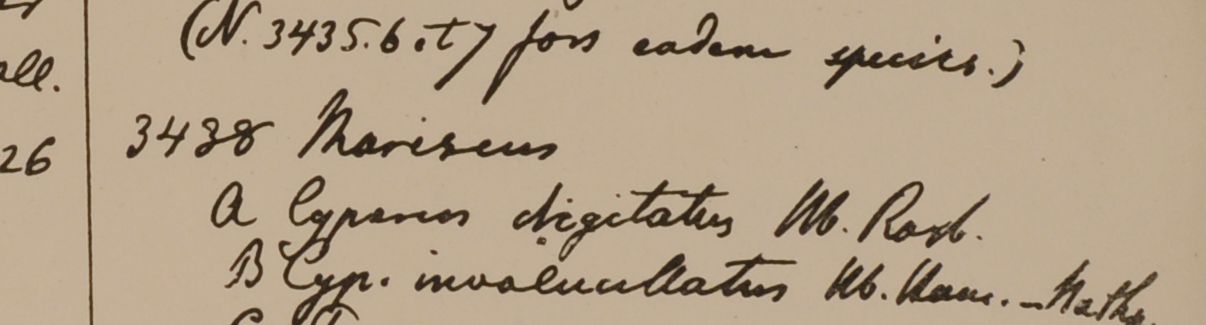 (N. 3435.6.et 7 fors eadem species.)
ll.
3438 Mariscus
26
A Cyperus digitatus Hb. Roxb.
B Cyp. involucellatus Hb. Ham. – Nathp.